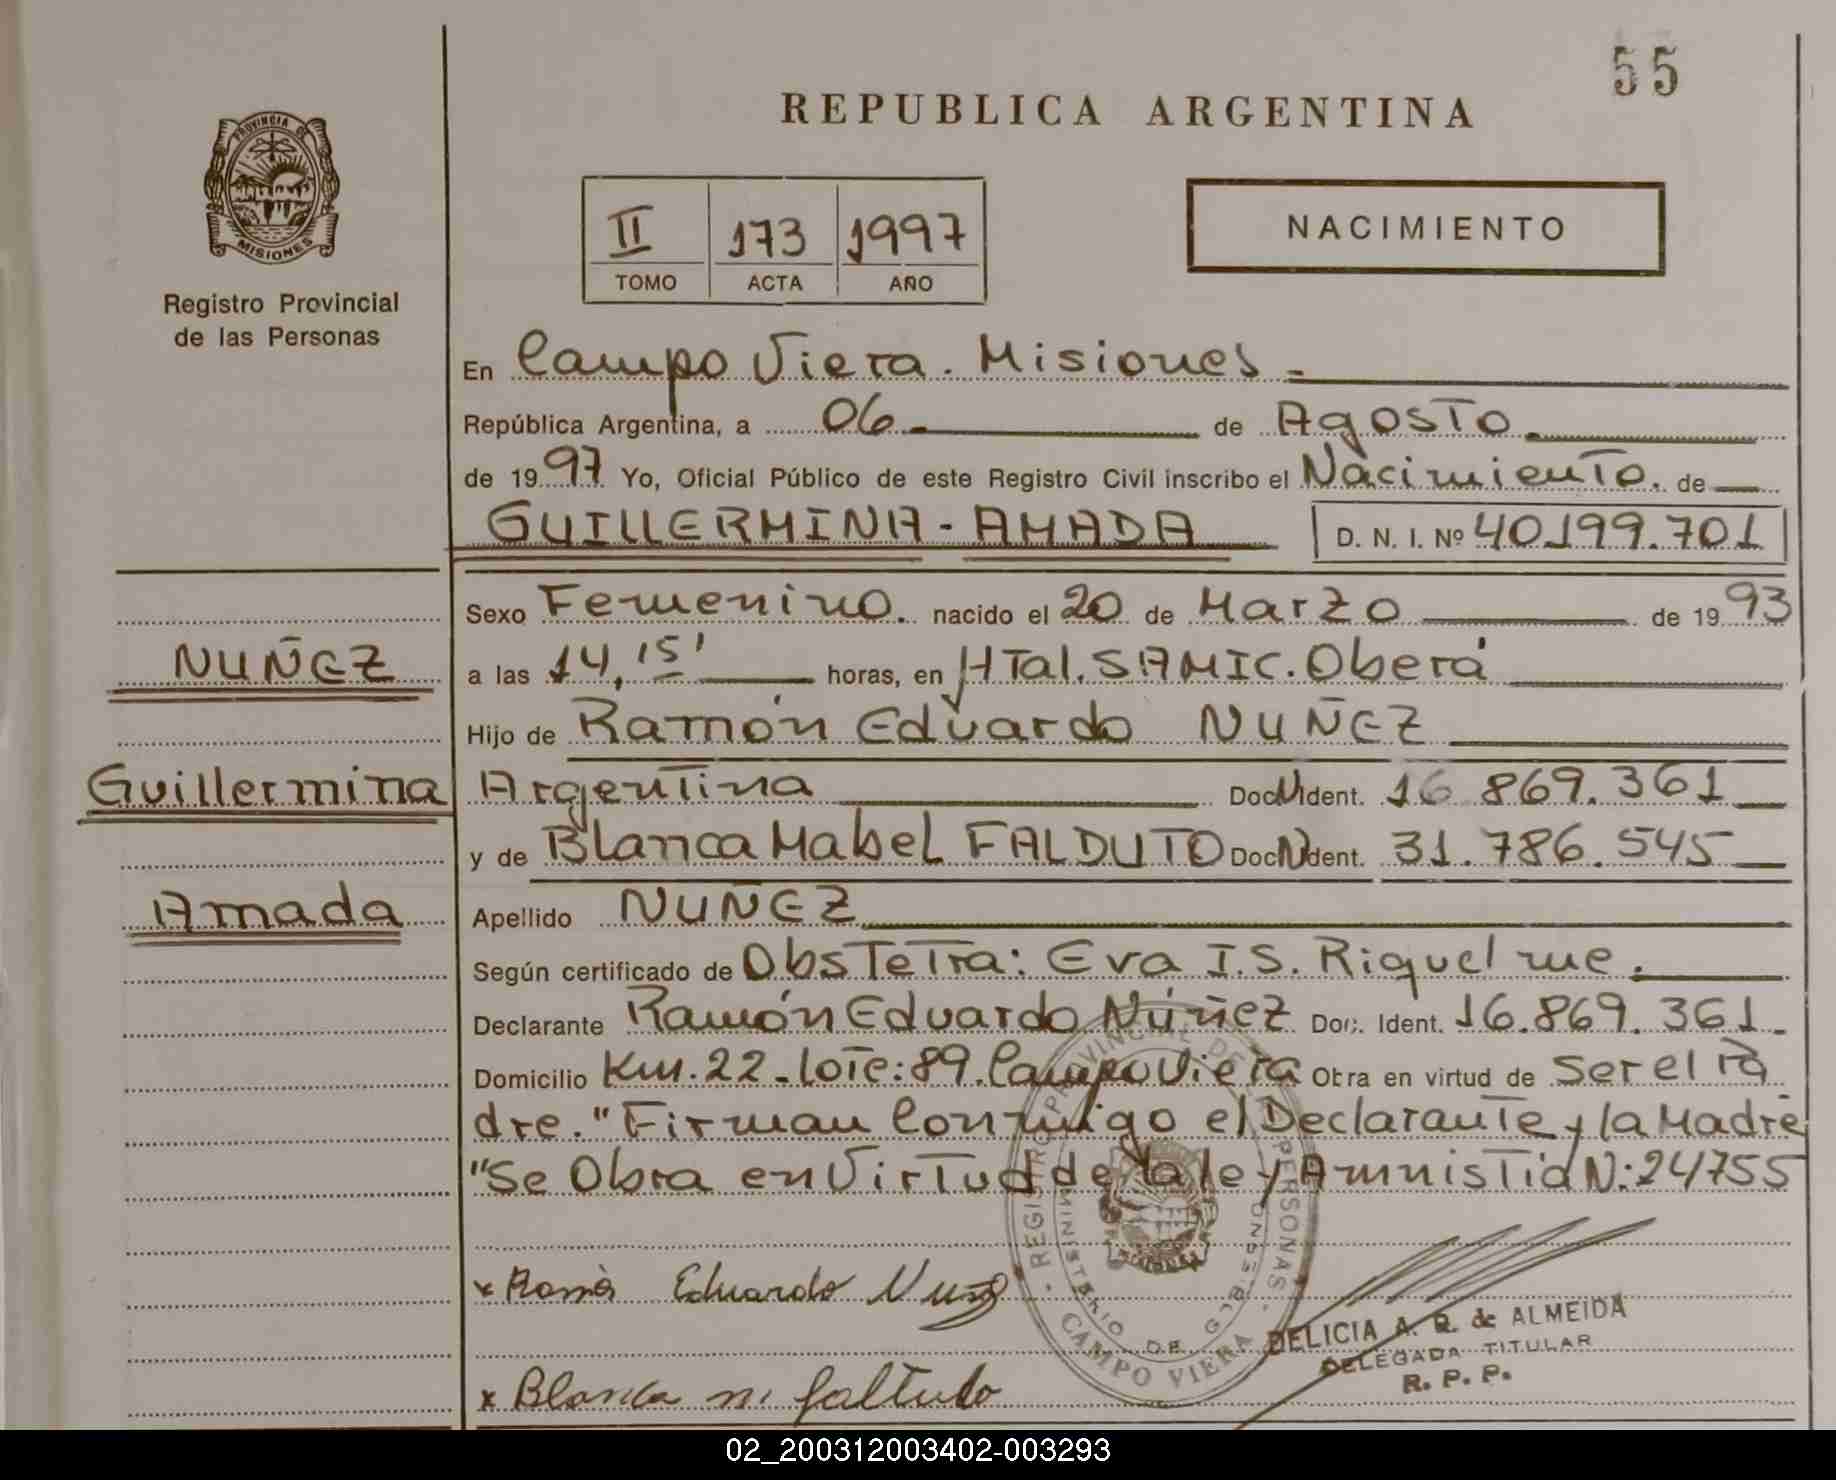 55
REPUBLICA ARGENTINA
PROVINCIA DE
MISIONES
Registro Provincial
de las Personas
II 173 1997
TOMO ACTA AÑO
NACIMIENTO
En Campo Viera. Misiones.=
República Argentina, a 06 de Agosto
de 1997 Yo, Oficial Público de este Registro Civil inscribo el Nacimiento. de
GUILLERMINA - AMADA D. N. I. Nº 40199.701
Sexo Femenino. nacido el 20 de Marzo de 1993
NUÑEZ
a las 14,15' horas, en HTal. SAMIC. Oberá
Hijo de Ramón Eduardo NUÑEZ
Guillermina
Argentina Doc. N Ident. 16 869.361
y de Blanca Mabel FALDUTO Doc. N Ident. 31.786.545
Amada
Apellido NUÑEZ
Según certificado de Obstetra: Eva I.S. Riquelme.
Declarante Ramón Eduardo Núñez Doc. Ident. 16.869.361.
Domicilio Km.22-lote:89.Campo Viera Obra en virtud de ser el Pa
dre. "Firman Conmigo el Declarante y la Madre
"Se Obra en Virtud de la ley Amnistia N:24755
REGISTRO PROVINCIAL DE LAS PERSONAS
MINISTERIO DE GOBIERNO
MISIONES
CAMPO VIERA
x Ramón Eduardo Nuñez
DELICIA A. R. de ALMEIDA
DELEGADA TITULAR
R. P. P.
x Blanca m. falduto
02_200312003402-003293